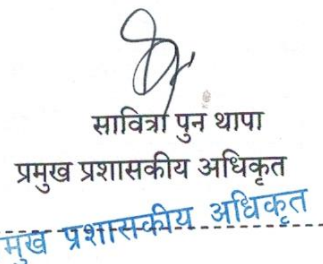 सावित्रा पुन थापा
प्रमुख प्रशासकीय अधिकृत
मुख प्रशासकीय अधिकृत